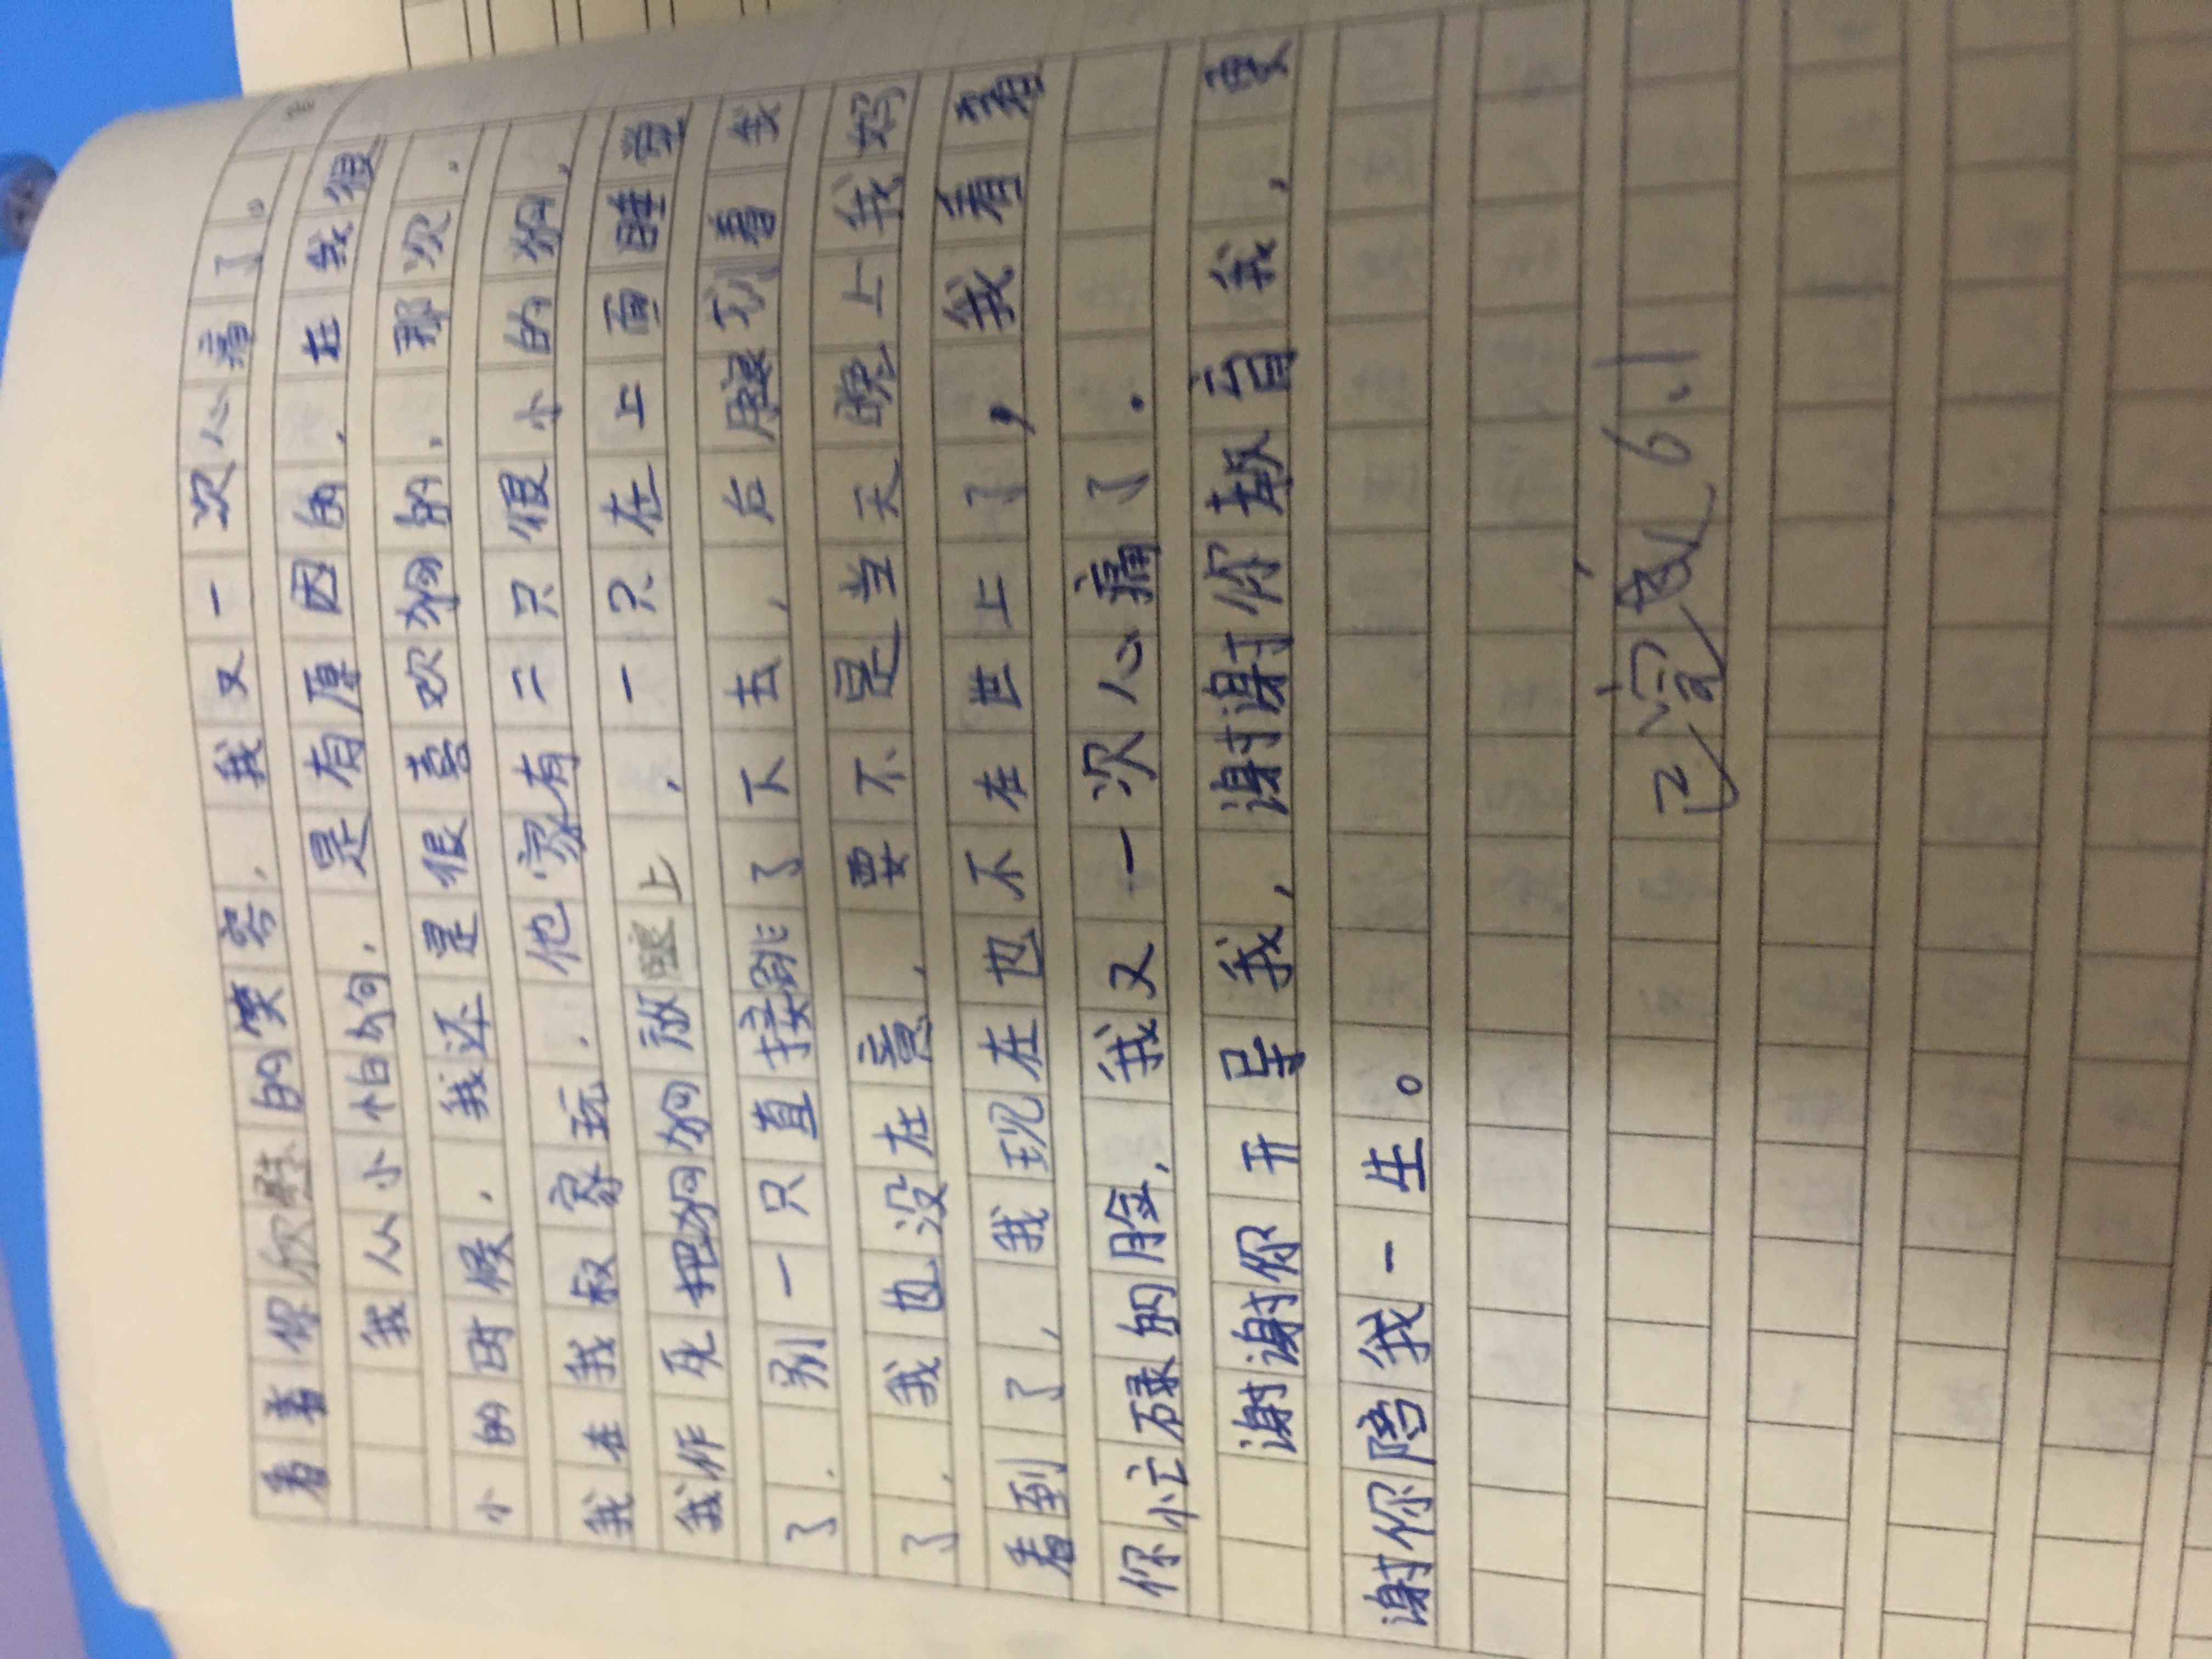 看着你欣慰的笑容，我又一次心痛了。
我从小怕勾，是有原因的，在我很
小的时候，我还是很喜欢狗的，那次，
我在我叔家玩，他家有二只很小的狗，
我作死把狗狗放腿上，一只在上面睡觉
了，别一只直接跳了下去，后腿划着我
了，我也没在意，要不是当天晚上我妈
看到了，我现在也不在世上了，我看着
你忙碌的脸，我又一次心痛了。
谢谢你开导我，谢谢你教育我，更
谢你陪我一生。
已阅 6.1